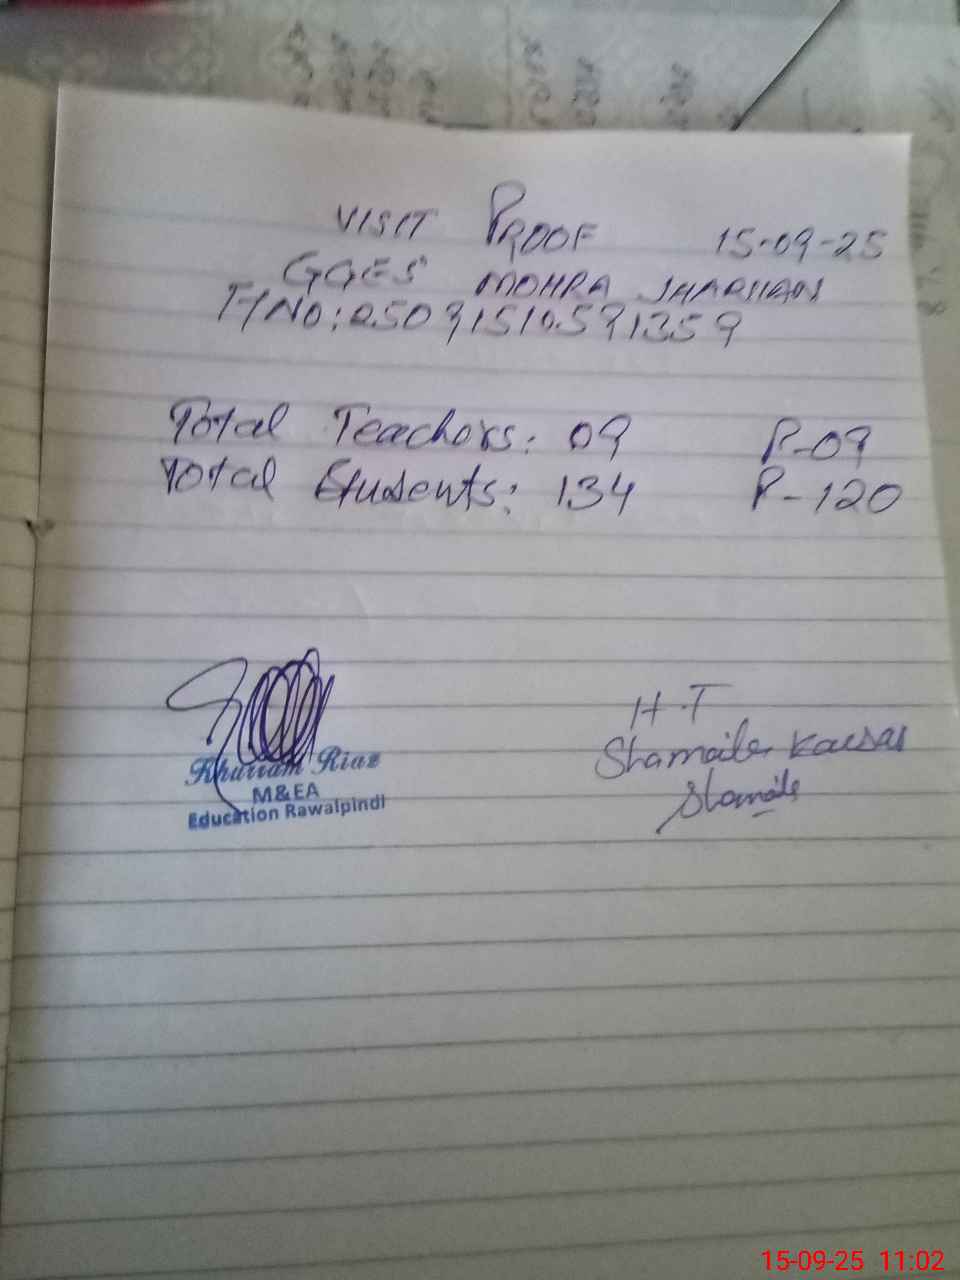 VISIT PROOF 15-09-25
GGES MOHRA
T/NO:
Total Teachers: 09 P-09
Total Students: 134 P-120
Khurram Riaz
M&EA
Education Rawalpindi
H.T
Shamaila Kausar
Shamaila
15-09-25 11:02